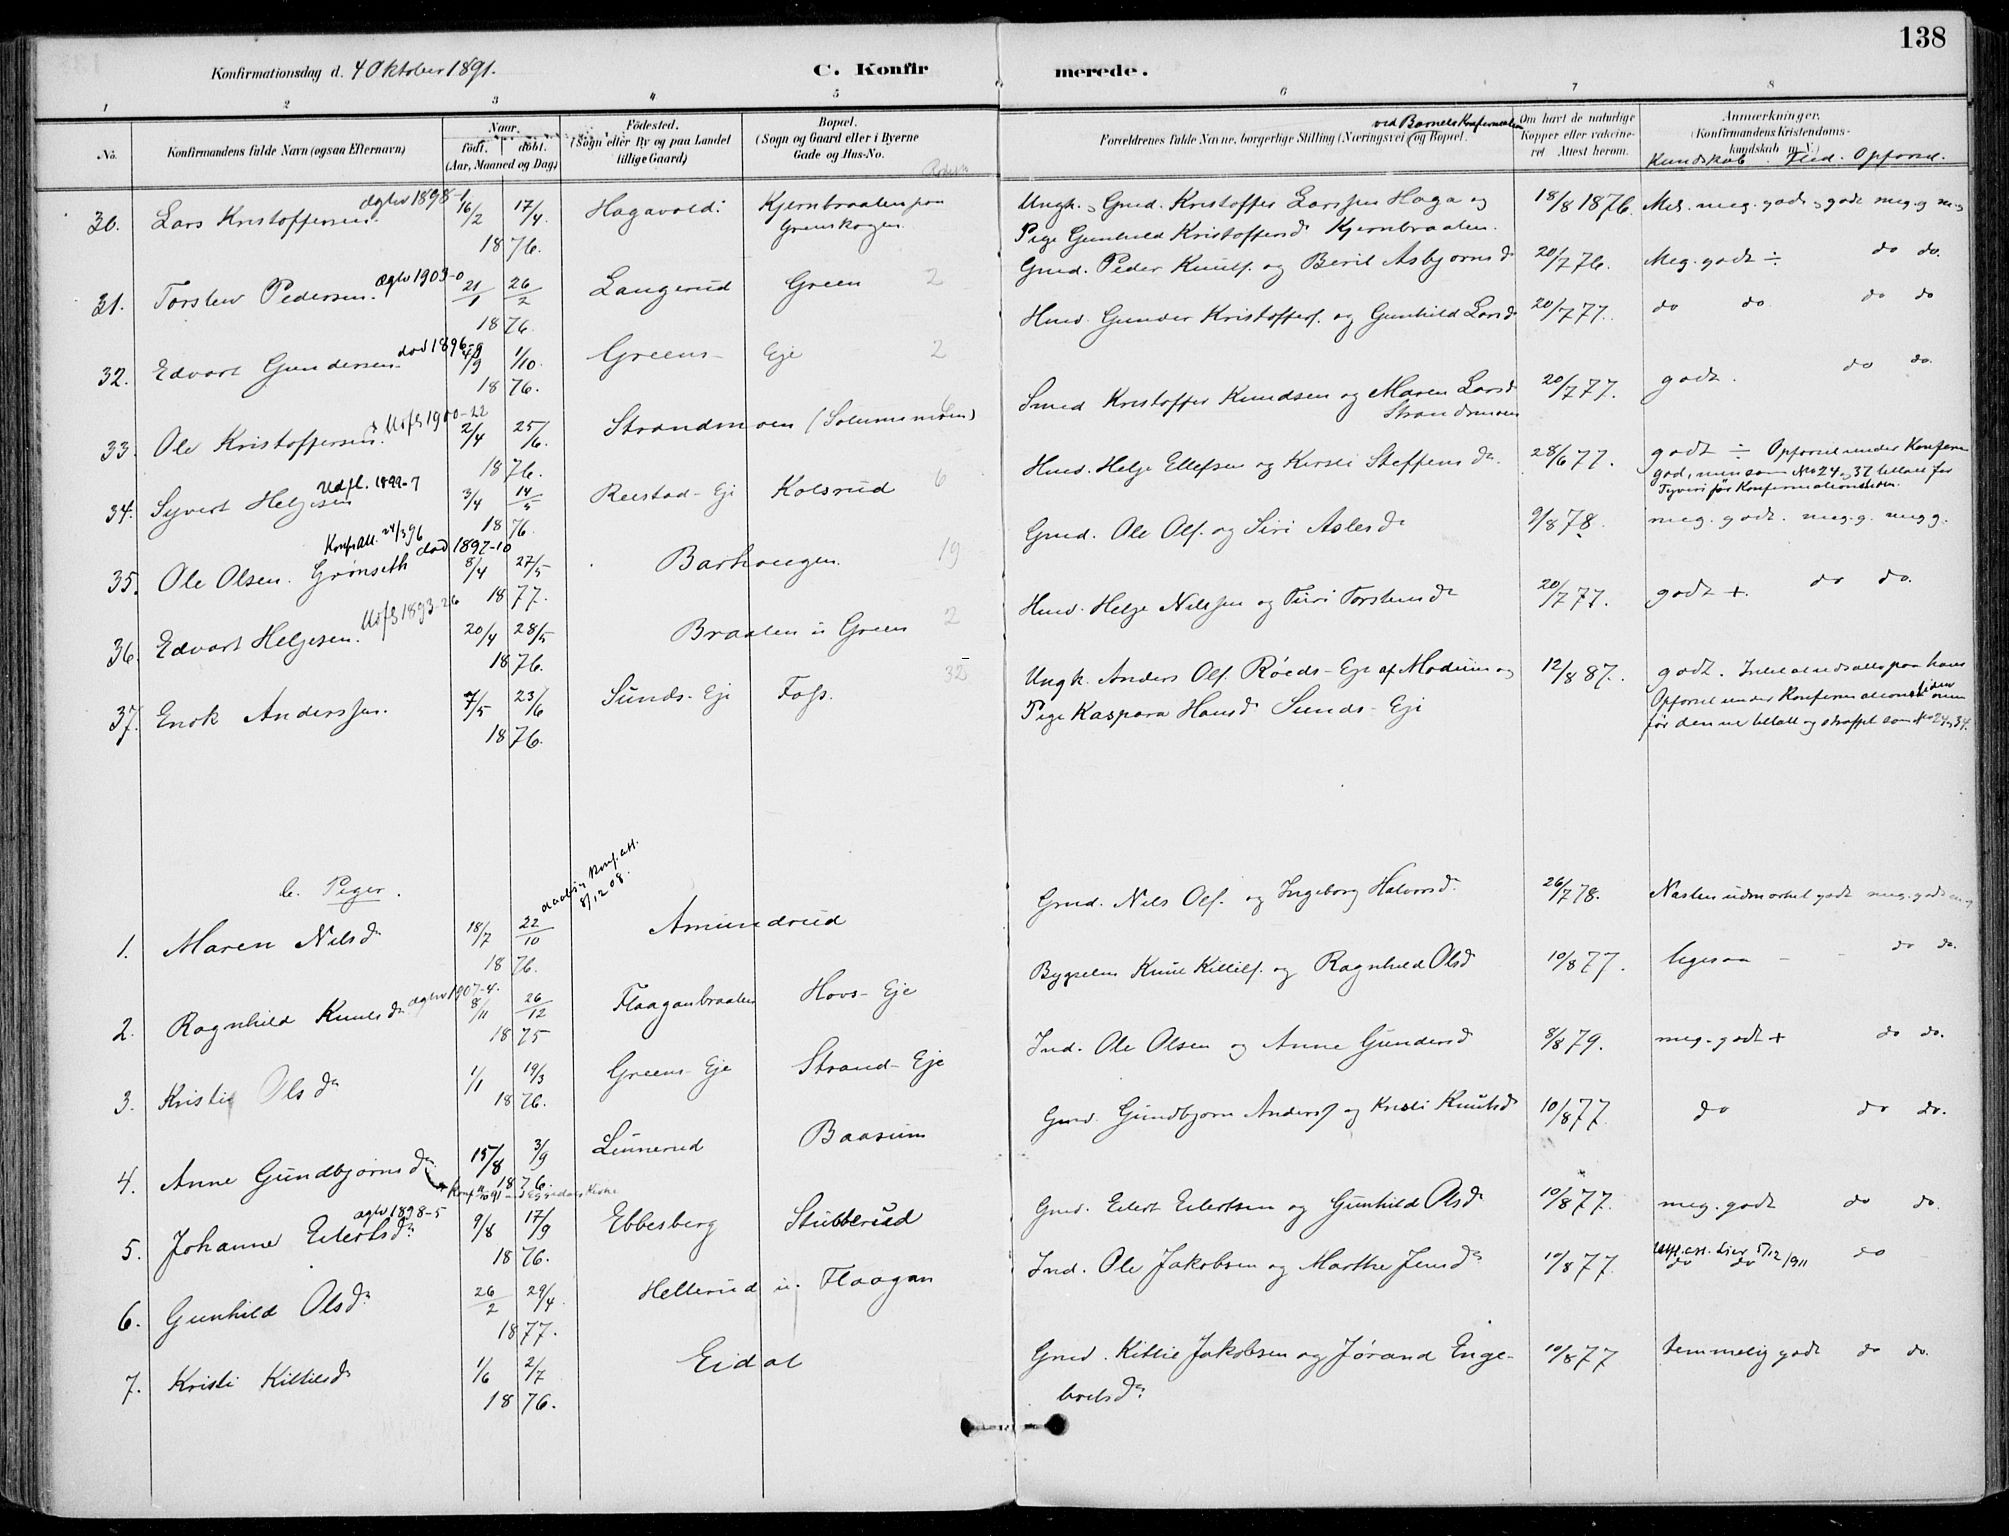 138
Konfirmationsdag d. 4 Oktober 1891. C. Konfirmerede.
1 2 3 4 5 6 7 8
No. Konfirmandens fulde Navn (ogsaa Efternavn) Naar. født. døbt. (Aar, Maaned og Dag) Fødested. (Sogn eller By og paa Landet tillige Gaard) Bopæl. (Sogn og Gaard eller i Byerne Gade og Hus-No. Forældrenes fulde Navne, borgerlige Stilling (Næringsvei) og Bopæl. ved Barnets Konfirmation Om havt de naturlige Kopper eller vakcineret. Attest herom. Anmerkninger. (Konfirmandens Kristendomskundskab m. V.) Kundskab. Flid. Opførsel.
30. Lars Kristoffersen. ægtev 1898-1 16/2 17/4. Hagavold: Kjernbraaten paa Ungk. Gmd. Kristoffer Larssen Haga og 18/8 1876. Meg. godt
1876. Grenskogen. Pige Gunhild Kristoffersdr Kjernbraaten.
31. Torsten Pedersen. ægtev 1903-0 21/1 26/2 Langerud Green 2 Gmd. Peder Knuts. og Berit Asbjørnsdr 20/7 76. Meg. godt ÷ do do.
1876.
32. Edvart Gundersen. død 1896-9 4/9 1/10. Greens- Eje 2 Husm. Gunder Kristoffers. og Gunhild Larsdr 20/7 77. do do. do do
1876.
33. Ole Kristoffersen. Udfl 1900-22 2/4 25/6. Strandmoen (Solumsmoen) Smed Kristoffer Knudsen og Maren Larsdr 20/7 77. godt. do do.
1876. Strandmoen
34. Syvert Helgesen Udfl. 1899-7 3/4 14/5 Reistad-Eje Kolsrud 6 Husm. Helge Ellefsen og Kirsti Steffensdr. 28/6 77. godt ÷ Opførsel under Konfirm
1876. god, men som No 24 og 37 tiltalt for
Tyveri før Konfirmationstiden.
35. Ole Olsen. Grønseth Konf.att. 24/3 96 død 1897-10 8/4 27/5 Barhaugen. 19 Gmd. Ole Ols. og Siri Aslesdr 9/8 78. meg. godt. meg.g. meg g.
1877.
36. Edvart Helgesen. Udfl 1893-26 20/4 28/5 Braaten u Green 2 Husm. Helge Nilssen og Turi Torstensdr 20/7 77. godt +. do do.
1876.
37. Enok Anderssen. 7/5 23/6 Sunds-Eje Foss. 32 Ungk. Anders Ols. Røeds-Eje af Modum og 12/8 87. godt. Intet at udsætte paa hans
1876. Pige Kaspara Hansdr Sunds-Eje Opførsel under Konfirmationstiden men
før den var tiltalt og straffet som No 24 og 34.
b. Piger.
1. Maren Nilsdr 18/7 22/10 Amundrud Gmd. Nils Ols. og Ingeborg Halvorsdr. 26/7 78. Næsten udmærket godt meg. godt
1876. daabs og konf.att. 8/12 08.
2. Ragnhild Knutsdr ægtev 1907-4. 8/11 26/12 Flaaganbraaten Hovs-Eje Bygselm Knut Kittils. og Ragnhild Olsdr 10/8 77. ligesaa - - do do.
1875
3. Kristi Olsdr 1/1 19/3 Greens-Eje Strand-Eje Ind. Ole Olsen og Anne Gundersdr 8/8 79. meg. godt + do do.
1876.
4. Anne Gundbjørnsdr. 15/8 3/9 Linnerud Baasum Gmd. Gundbjørn Anders. og Kristi Knutsdr 10/8 77 do do do.
1876.
5. Johanne Eilertsdr ægtv 1898-5 9/8 17/9 Ebbesberg Stubberud Gmd. Eilert Eilertsen og Gunhild Olsdr 10/8 77. meg. godt do do.
1876.
6. Gunhild Olsdr. 26/2 29/4. Hellerud u. Flaagan Ind. Ole Jakobsen og Marthe Jensdr 10/8 77. Udfl. att. Lier 5/12 1911 do do do
1877.
7. Kristi Kittilsdr 1/6 2/7 Eidal Gmd. Kittil Jakobsen og Jørand Enge- 10/8 77 temmelig godt do do.
1876. bretsdr